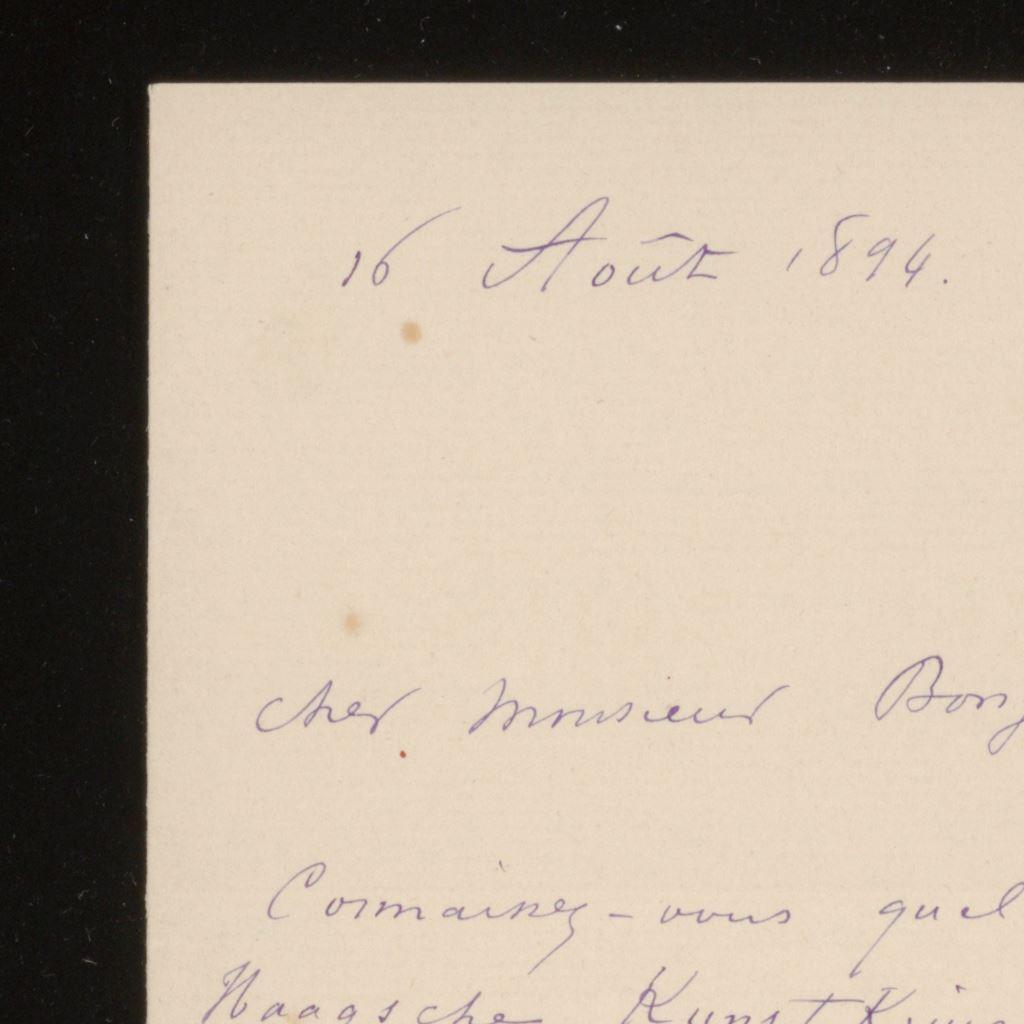 16 Août 1894.
cher Monsieur Bong
Connaissez-vous quel
Haagsche Kunst Kring